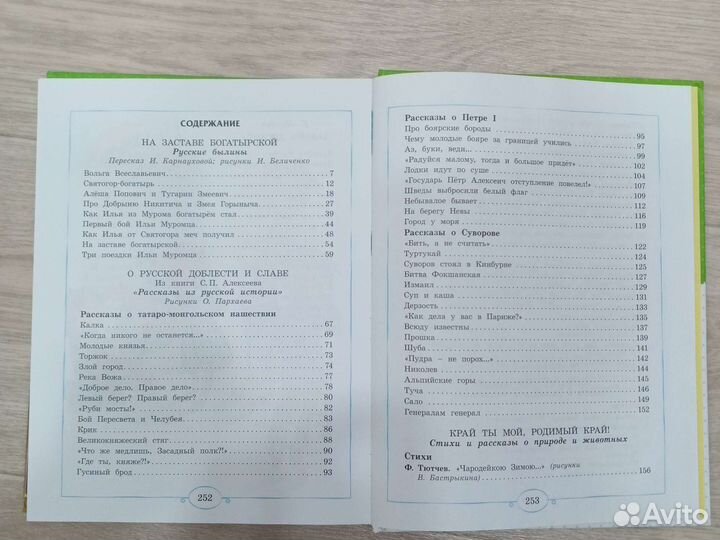 СОДЕРЖАНИЕ
НА ЗАСТАВЕ БОГАТЫРСКОЙ
Русские былины
Пересказ И. Карнауховой; рисунки И. Беличенко
Вольга Всеславьевич 7
Святогор-богатырь 12
Алёша Попович и Тугарин Змеевич 18
Про Добрыню Никитича и Змея Горыныча 27
Как Илья из Мурома богатырём стал 39
Первый бой Ильи Муромца 44
Как Илья от Святогора меч получил 48
На заставе богатырской 54
Три поездки Ильи Муромца 59
О РУССКОЙ ДОБЛЕСТИ И СЛАВЕ
Из книги С. П. Алексеева
«Рассказы из русской истории»
Рисунки О. Пархаева
Рассказы о татаро-монгольском нашествии
Калка 67
«Когда никого не останется...» 69
Молодые князья 71
Торжок 73
Злой город 74
Река Вожа 77
«Доброе дело. Правое дело» 78
Левый берег? Правый берег? 80
«Руби мосты!» 82
Бой Пересвета и Челубея 83
Крик 86
Великокняжеский стяг 88
«Что же медлишь, Засадный полк?!» 90
«Где ты, княже?!» 92
Гусиный брод 93
252
Рассказы о Петре I
Про боярские бороды 95
Чему молодые бояре за границей учились 97
Аз, буки, веди... 99
«Радуйся малому, тогда и большое придёт» 102
Лодки идут по суше 104
«Государь Пётр Алексеич отступление повелел!» 107
Шведы выбросили белый флаг 109
Небывалое бывает 112
На берегу Невы 116
Город у моря 119
Рассказы о Суворове
«Бить, а не считать» 122
Туртукай 124
Суворов стоял в Кинбурне 126
Битва Фокшанская 128
Измаил 129
Суп и каша 131
Дерзость 134
«Как дела у вас в Париже?» 135
Всюду известны 137
Прошка 139
Шуба 141
«Пудра – не порох...» 142
Николев 144
Альпийские горы 145
Туча 146
Сало 149
Генералам генерал 152
КРАЙ ТЫ МОЙ, РОДИМЫЙ КРАЙ!
Стихи и рассказы о природе и животных
Стихи
Ф. Тютчев. «Чародейкою Зимою...» (рисунки
В. Бастрыкина) 156
253
Avito